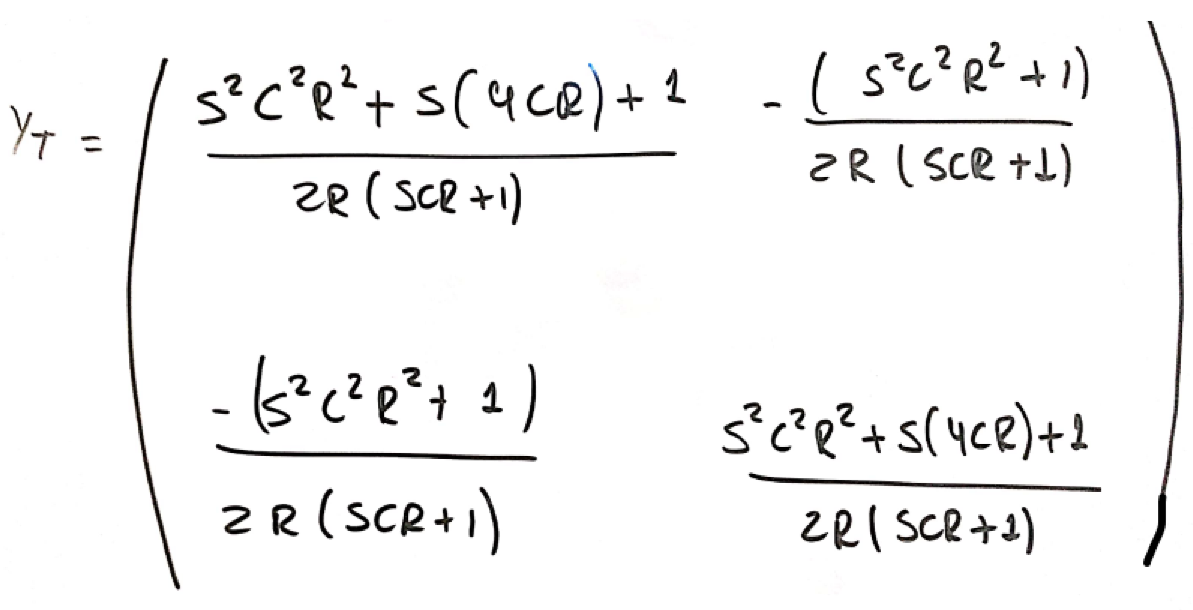 Y_T = ( (S²C²R² + S(4CR) + 1) / (2R(SCR+1))   -(S²C²R² + 1) / (2R(SCR+1))
-(S²C²R² + 1) / (2R(SCR+1))   (S²C²R² + S(4CR) + 1) / (2R(SCR+1)) )